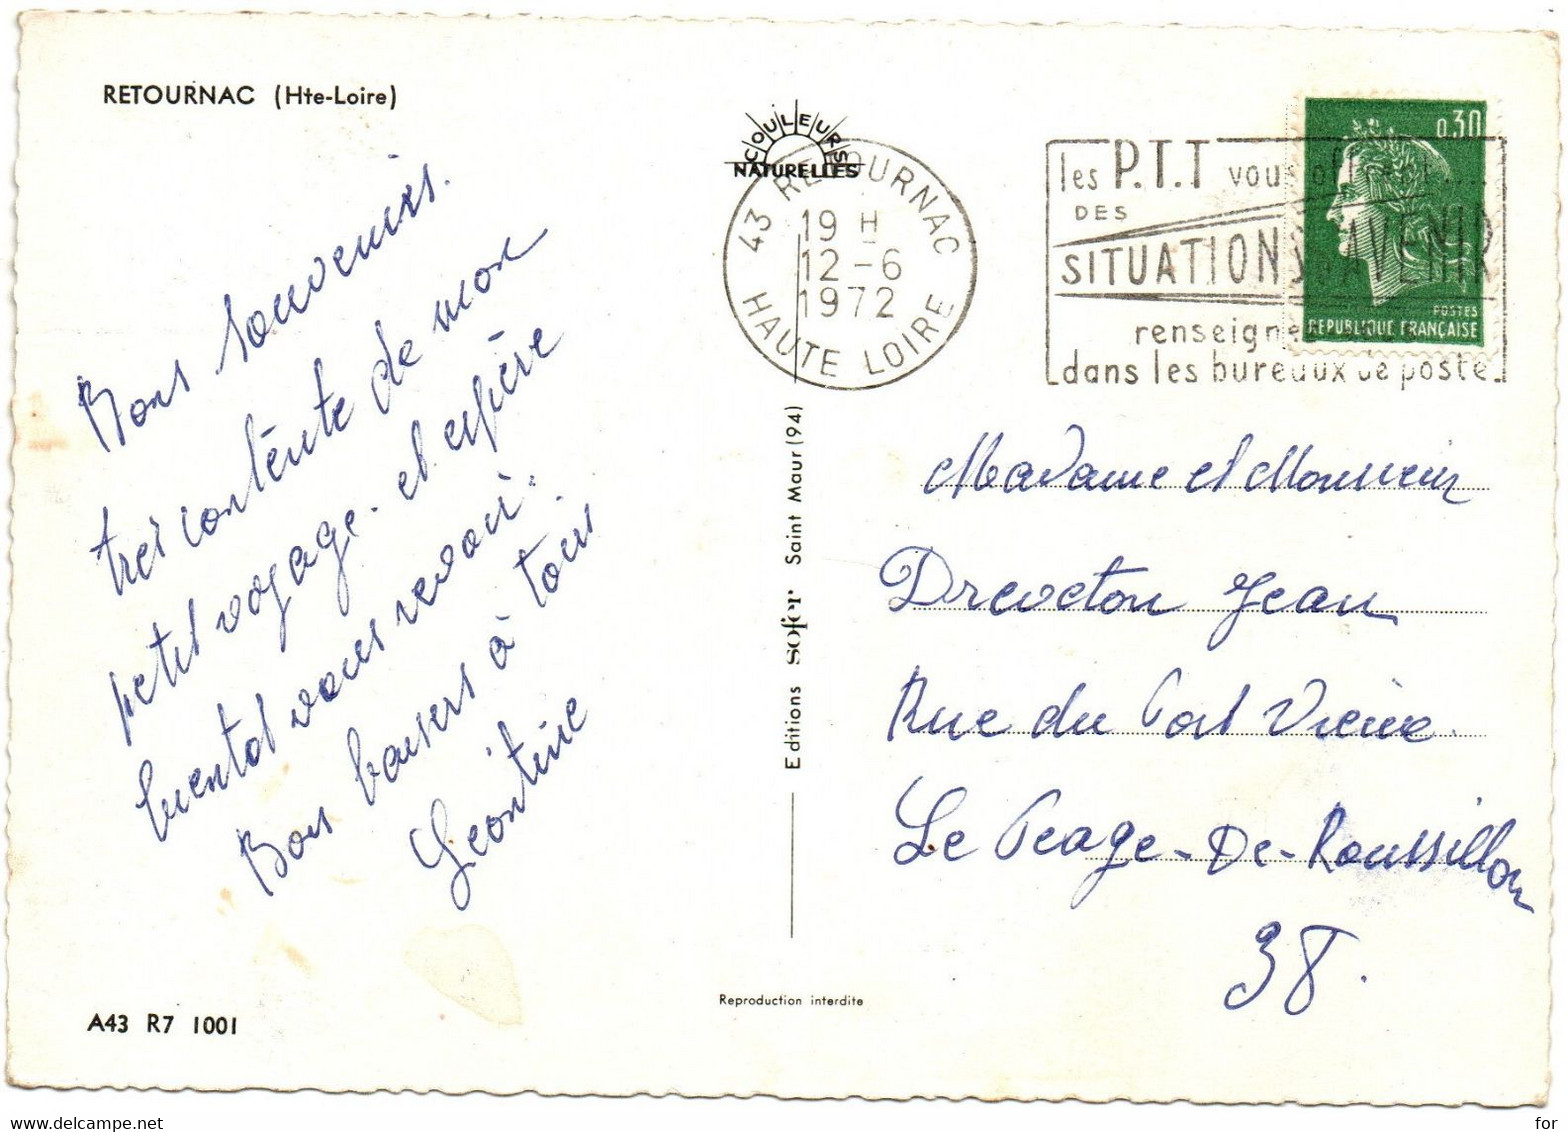 RETOURNAC (Hte-Loire)
Bons Souvenirs.
tres contente de mon
petit voyage. et espère
bientot vous revoir.
Bons baisers à tous
Léontine
A43 R7 1001
COULEURS
NATURELLES
43 RETOURNAC
19 H
12-6
1972
HAUTE LOIRE
les P.T.T vous offrent....
DES
SITUATIONS AVENIR
dans les bureaux de poste
0,30
POSTES
REPUBLIQUE FRANÇAISE
Editions sofer Saint Maur (94)
Reproduction interdite
Madame et Monsieur
Dreveton Jean
Rue du Port Vieux
Le Péage-De-Roussillon
38.
for